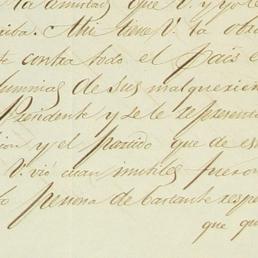 la amistad que V. y yo te
criba. Ahi tiene V. la obra
te contra todo el pais
lumnias de sus malquerien
Presidente y se le represent
ion y el partido que de es
V. vió cuan inutiles fueron
persona de bastante respe
que qu